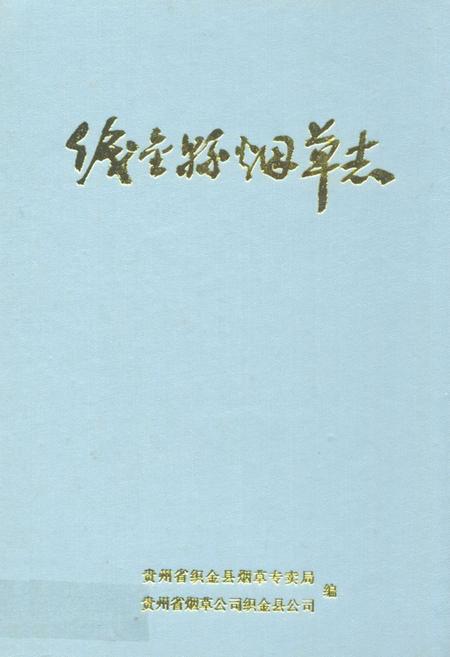 織金縣烟草志
贵州省织金县烟草专卖局
贵州省烟草公司织金县公司
编